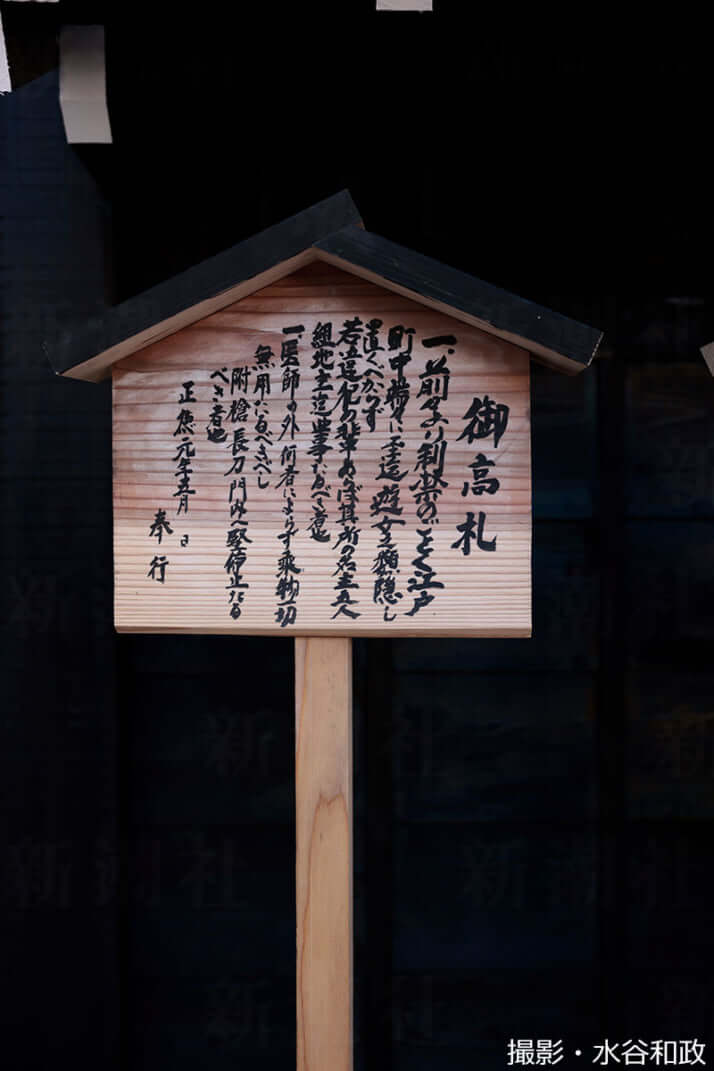 御高札
一、前々より制禁のごとく江戸
町中端々に至迄遊女之類隠し
置くべからず
若違犯の輩あらば其所の名主五人
組地主迄曲事なるべき者也
一、医師の外何者によらず乗物一切
無用たるべきべし
附槍長刀門内へ堅停止たる
べき者也
正徳元年五月 日
奉行
撮影・水谷和政
新潮社
新潮社
新潮社